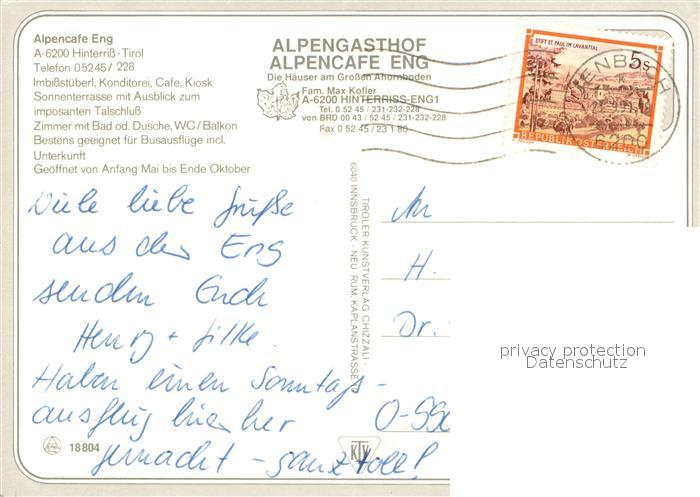 Alpencafe Eng
A-6200 Hinterriß-Tirol
Telefon 05245/228
Imbißstüberl, Konditorei, Cafe, Kiosk
Sonnenterrasse mit Ausblick zum
imposanten Talschluß
Zimmer mit Bad od. Dusche, WC/Balkon
Bestens geeignet für Busausflüge incl.
Unterkunft
Geöffnet von Anfang Mai bis Ende Oktober
ALPENGASTHOF
ALPENCAFE ENG
Die Häuser am Großen Ahornboden
Fam. Max Kofler
A-6200 HINTERRISS-ENG1
Tel. 0 52 45 / 231-232-228
von BRD 00 43 / 52 45 / 231-232-228
Fax 0 52 45 / 23 1 80
STIFT ST. PAUL IM LAVANTTAL
5s
REPUBLIK ÖSTERREICH
JENBACH
6200
Viele liebe Grüße
aus der Eng
senden Euch
Henry + Silke.
Haben einen Sonntags-
ausflug hier her
gemacht - ganz toll!
TIROLER KUNSTVERLAG CHIZZALI ·
6040 INNSBRUCK - NEU-RUM, KAPLANSTRASSE
An
H.
Dr.
O-
privacy protection
Datenschutz
18804
KTV